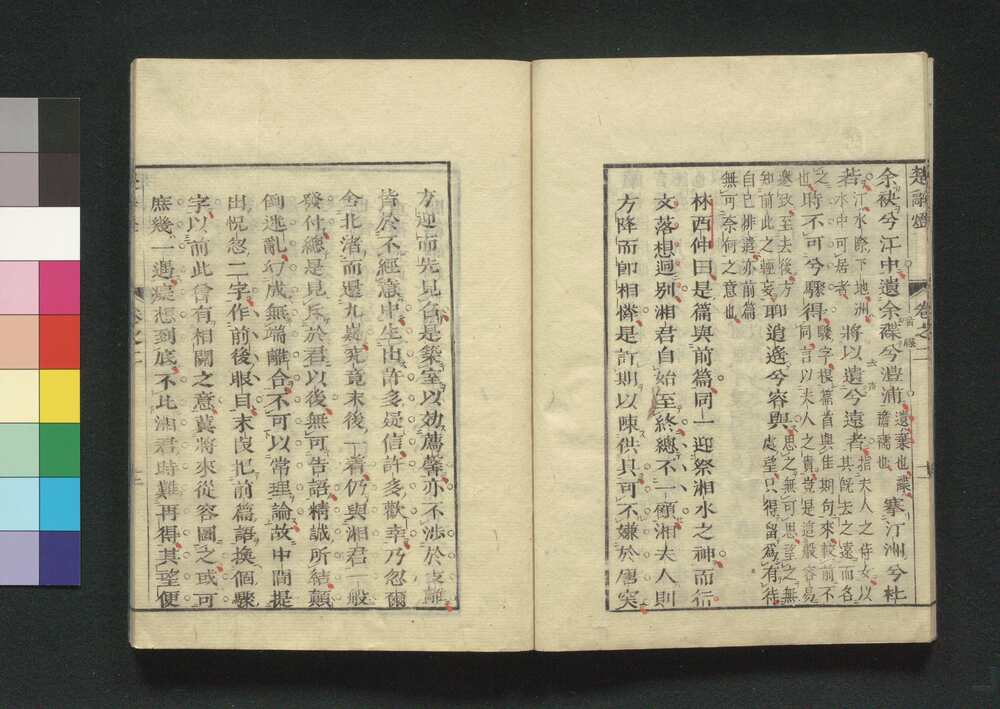 楚辭燈　卷之二
余袂兮江中遺余褋兮澧浦遺棄也褋襜襦也搴汀洲兮杜
若汀水際下地洲水中可居者將以遺兮遠者指夫人之侍女以其旣去之遠而名
之也時不可兮驟得驟字根篇首與佳期句來較前不同言以夫人之貴豈是這般容易
邀致至去後方知前此之輕妄聊逍遙兮容與思之無可思望之無處望只得留爲有待
自己排遣亦前篇無可奈何之意也
林西仲曰是篇與前篇同一迎祭湘水之神而行
文落想迥別湘君自始至終總不一顧湘夫人則
方降而卽相憐是許期以陳供具可不嫌於唐突
方迎而先見召是築室以効薦馨亦不涉於支離
皆於不經意中生出許多疑信許多歡幸乃忽爾
今北渚而還九嶷究竟末後一着仍與湘君一般
發付總是見斥於君以後無可告語精誠所結顛
倒迷亂幻成無端離合不可以常理論故中間提
出怳忽二字作前後眼目末段把前篇語換個驟
字以前此曾有相關之意冀將來從容圖之或可
庶幾一遇癡想到底不比湘君時難再得其望便